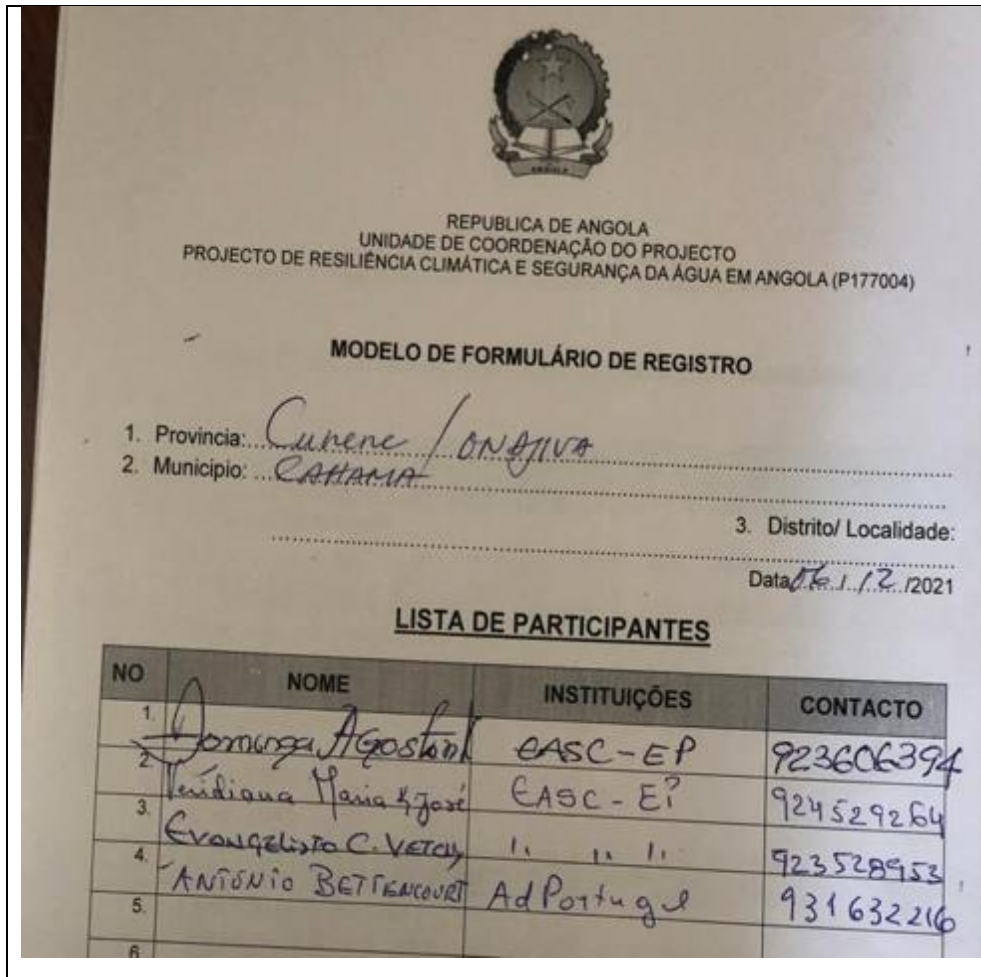 ANGOLA
REPUBLICA DE ANGOLA
UNIDADE DE COORDENAÇÃO DO PROJECTO
PROJECTO DE RESILIÊNCIA CLIMÁTICA E SEGURANÇA DA ÁGUA EM ANGOLA (P177004)
MODELO DE FORMULÁRIO DE REGISTRO
1. Provincia: Cunene / ONDJIVA
2. Municipio: CAHAMA
3. Distrito/ Localidade:
Data 06/12/2021
LISTA DE PARTICIPANTES
NO NOME INSTITUIÇÕES CONTACTO
1. Dominga Agostinho EASC-EP 923606394
2. Veridiana Maria José EASC-EP 924529264
3. Evangelisto C. " " " 923528953
4. ANTÓNIO BETTENCOURT AdPortugal 931632216
5.
6.